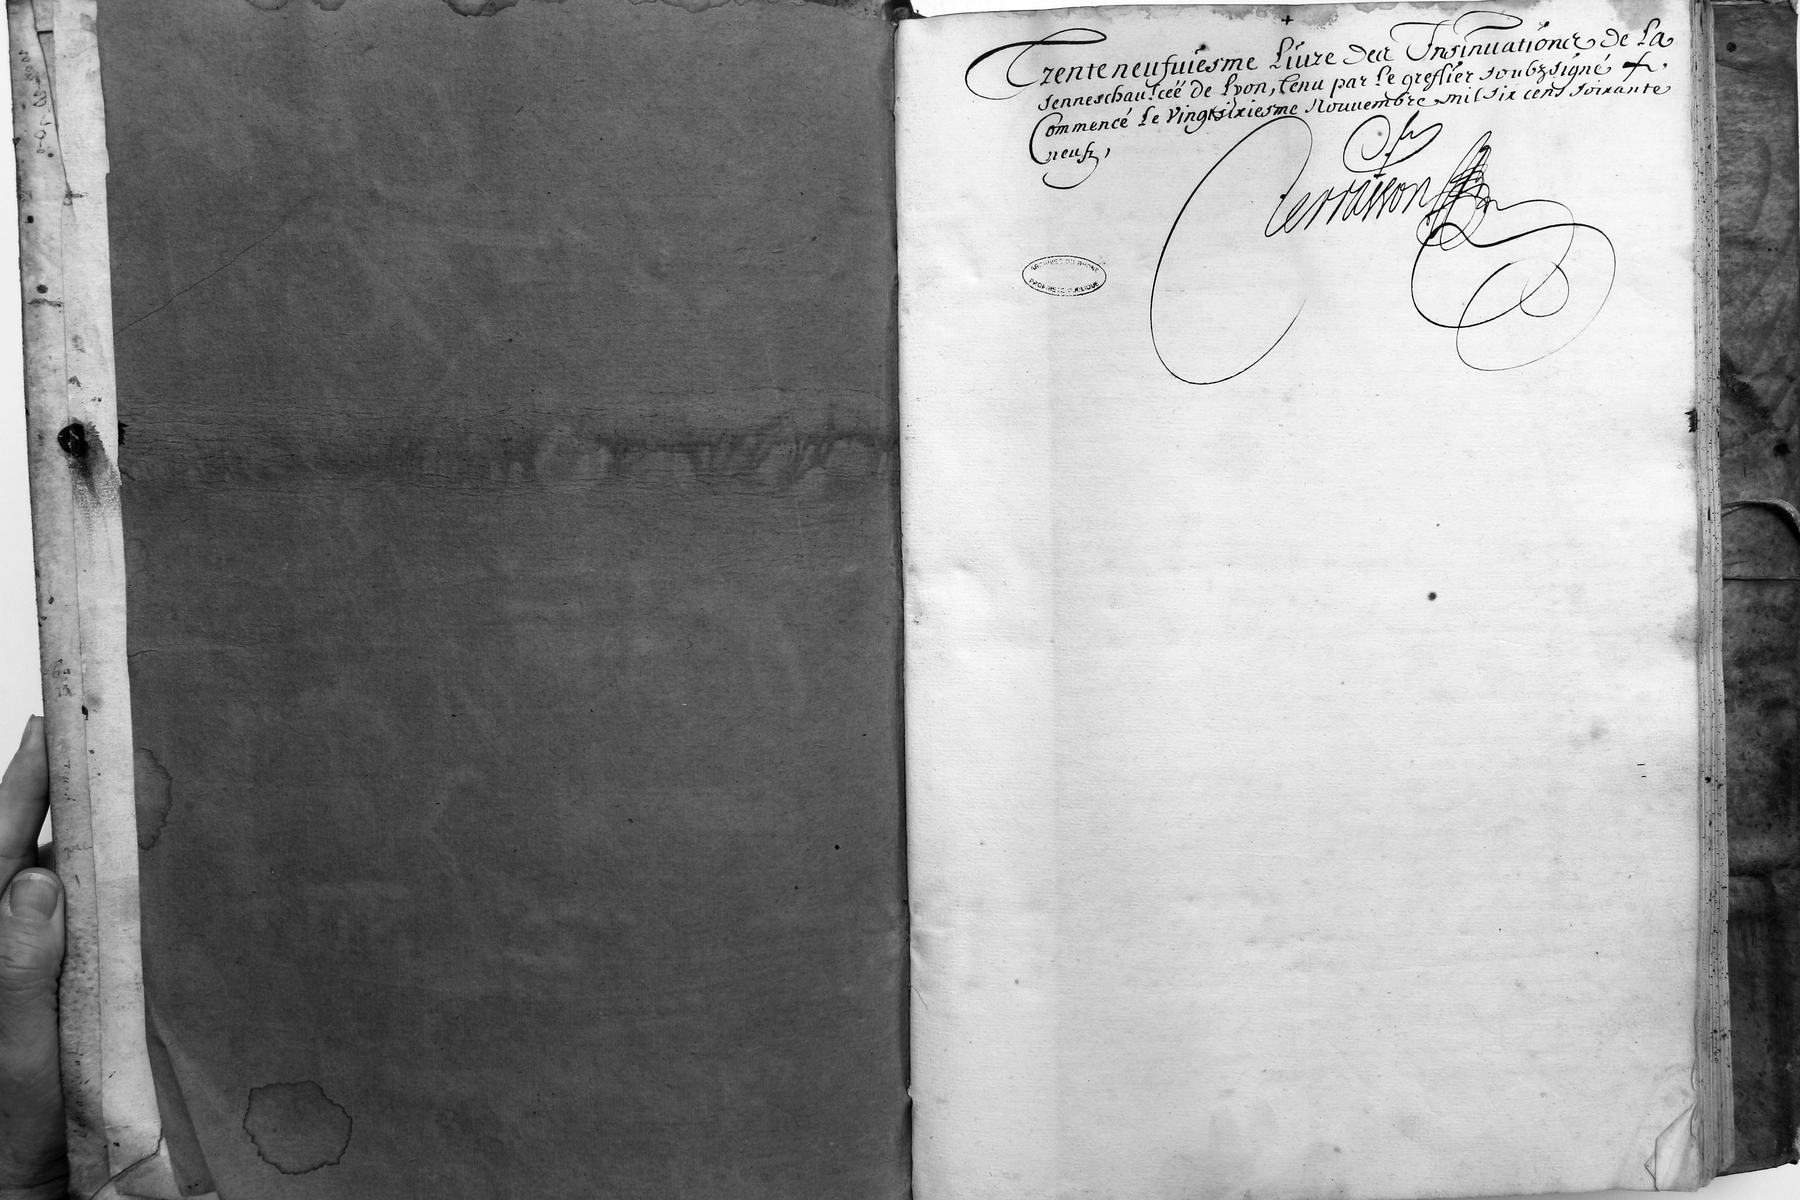 Trenteneufuiesme Liure des Insinuationes de La
senneschaulceé de Lyon, tenu par Le greffier soubzsigné
Commencé Le Vingtsixiesme Nouuembre mil six cens soixante
neuf,
Terrasson
ARCHIVES DU RHONE
PROPRIETE PUBLIQUE